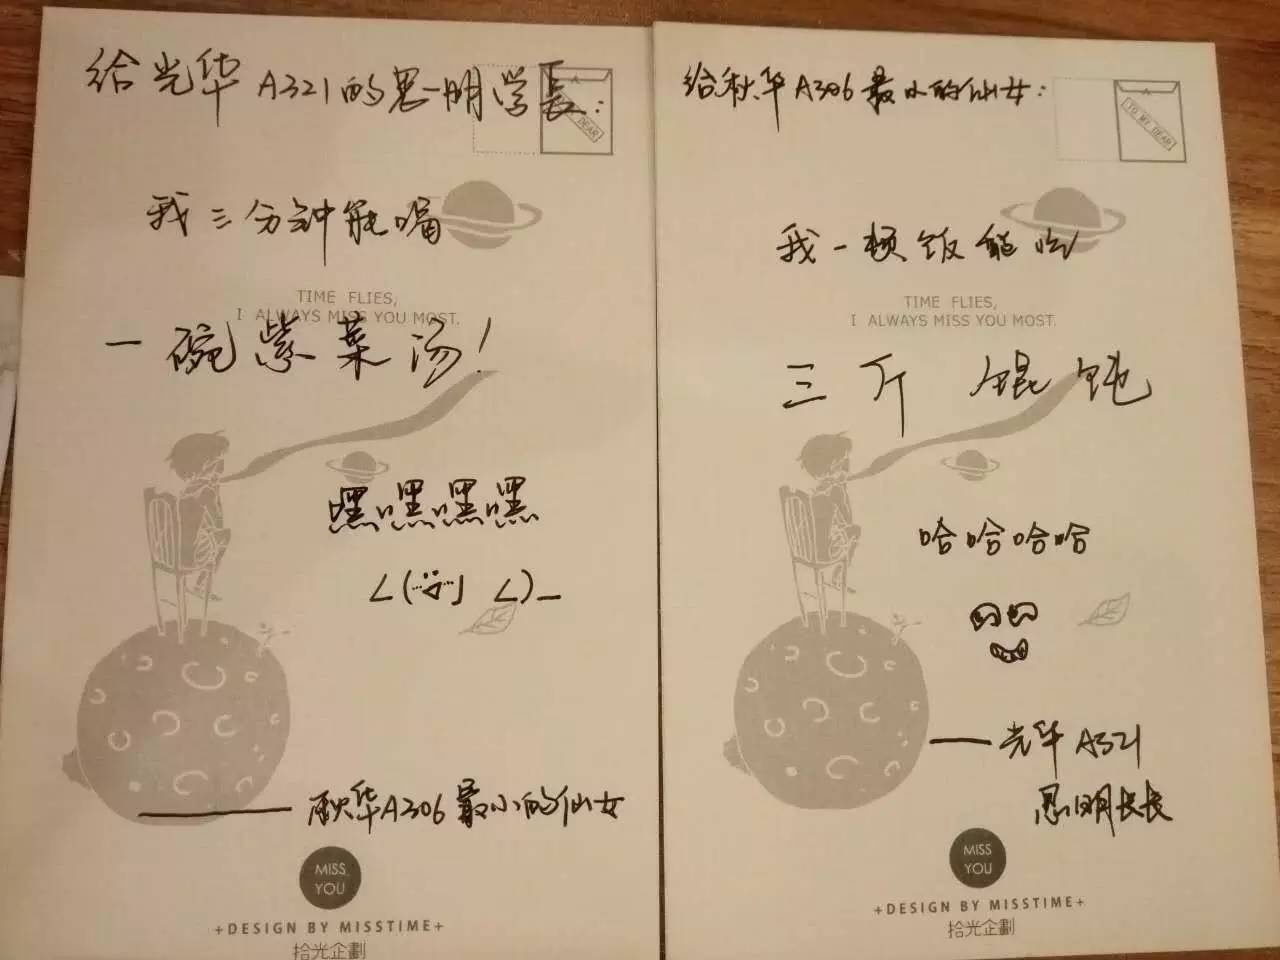 给光华A321的思明学長：
我三分钟能喝
TIME FLIES,
I ALWAYS MISS YOU MOST.
一碗紫菜汤！
嘿嘿嘿嘿
——秋华A306最小的仙女
MISS
YOU
+DESIGN BY MISSTIME+
拾光企劃
给秋华A306最小的仙女：
TO MY DEAR
我一顿饭能吃
TIME FLIES,
I ALWAYS MISS YOU MOST.
三斤馄饨
哈哈哈哈
——光华A321
思明长长
MISS
YOU
+DESIGN BY MISSTIME+
拾光企劃